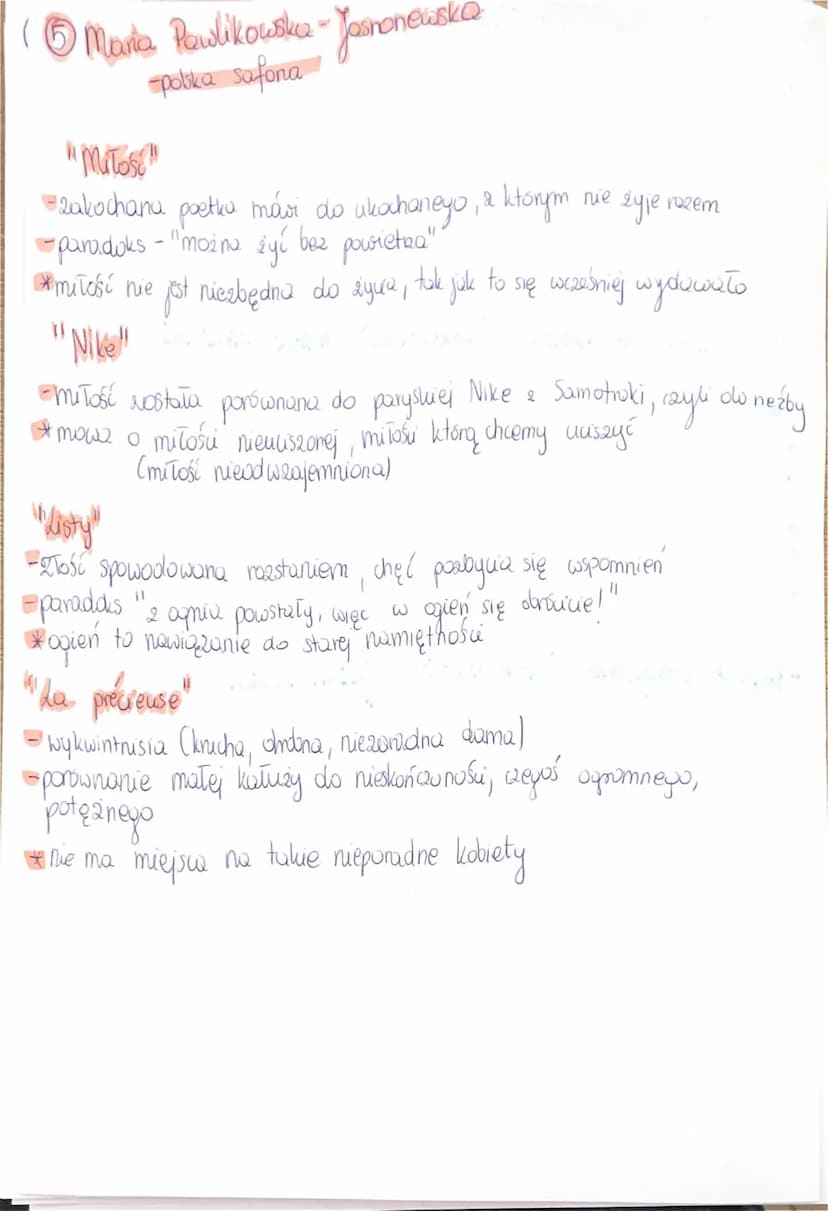 ( ⑤ Maria Pawlikowska - Jasnorzewska
- polska safona
"Miłość"
- zakochana poetka mówi do ukochanego, z którym nie żyje razem
- paradoks - "można żyć bez powietrza"
* miłość nie jest niezbędna do życia, tak jak to się wcześniej wydawało
"Nike"
- miłość została porównana do paryskiej Nike z Samotraki, czyli do rzeźby
* mowa o miłości nieuciszonej, miłości którą chcemy uciszyć
(miłość nieodwzajemniona)
"Listy"
- złość spowodowana rozstaniem, chęć pozbycia się wspomnień
- paradoks "z ognia powstały, więc w ogień się obróćcie!"
* ogień to nawiązanie do starej namiętności
"La précieuse"
- wykwintnisia (krucha, drobna, niezaradna dama)
- porównanie małej kałuży do nieskończoności, czegoś ogromnego,
potężnego
* nie ma miejsca na takie nieporadne kobiety